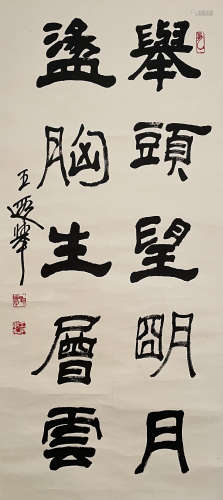 舉頭望朙月
盪胸生層雲
王遐舉